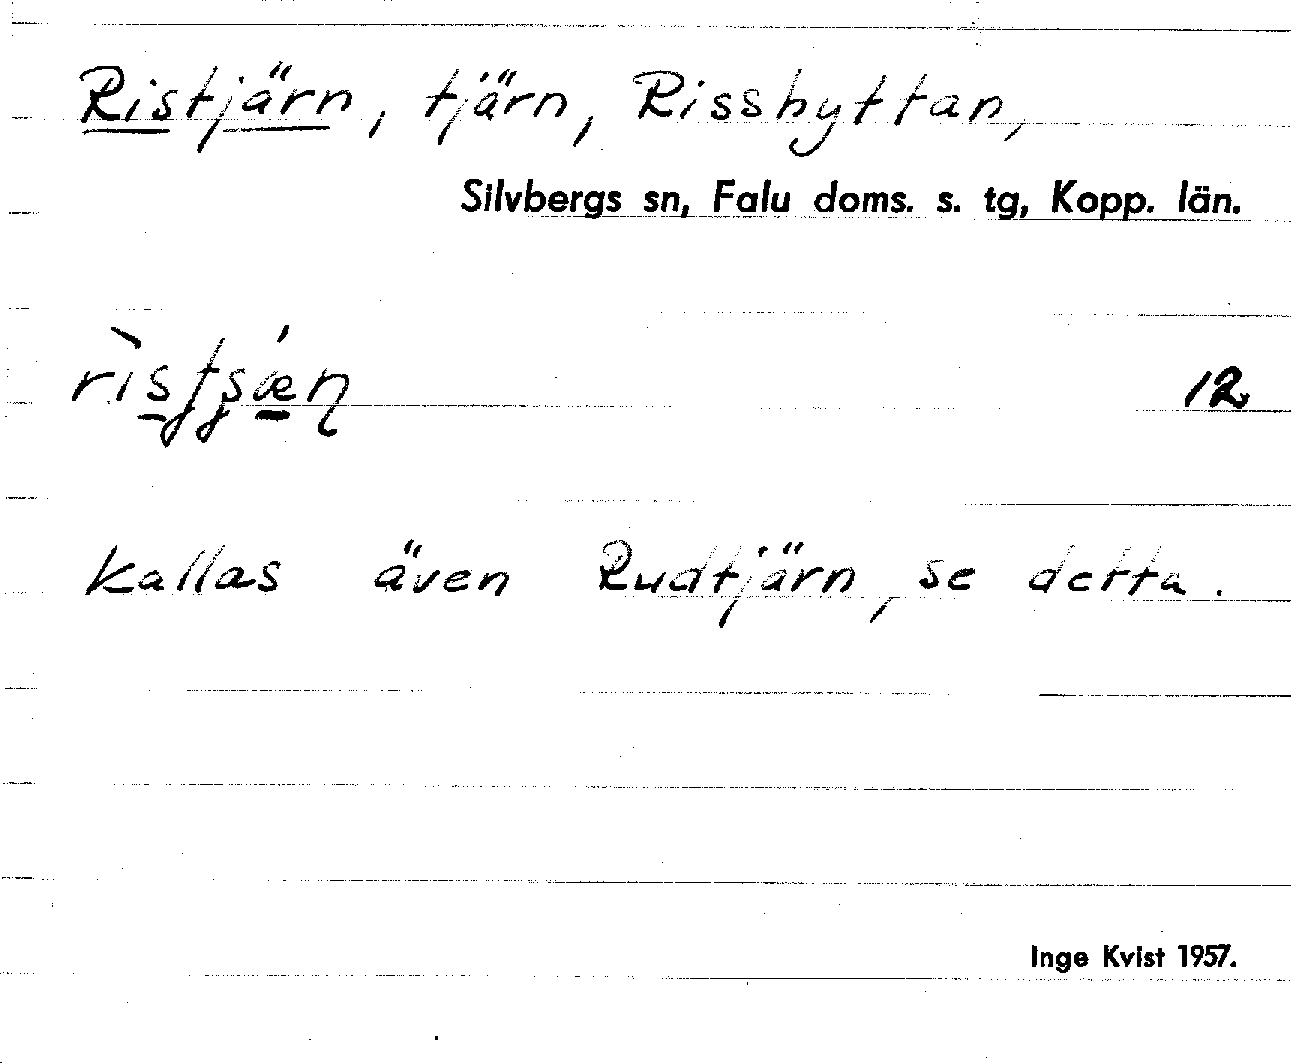 Ristjärn, tjärn, Risshyttan,
Silvbergs sn, Falu doms. s. tg, Kopp. län.
12
kallas även Rudtjärn, se detta.
Inge Kvist 1957.